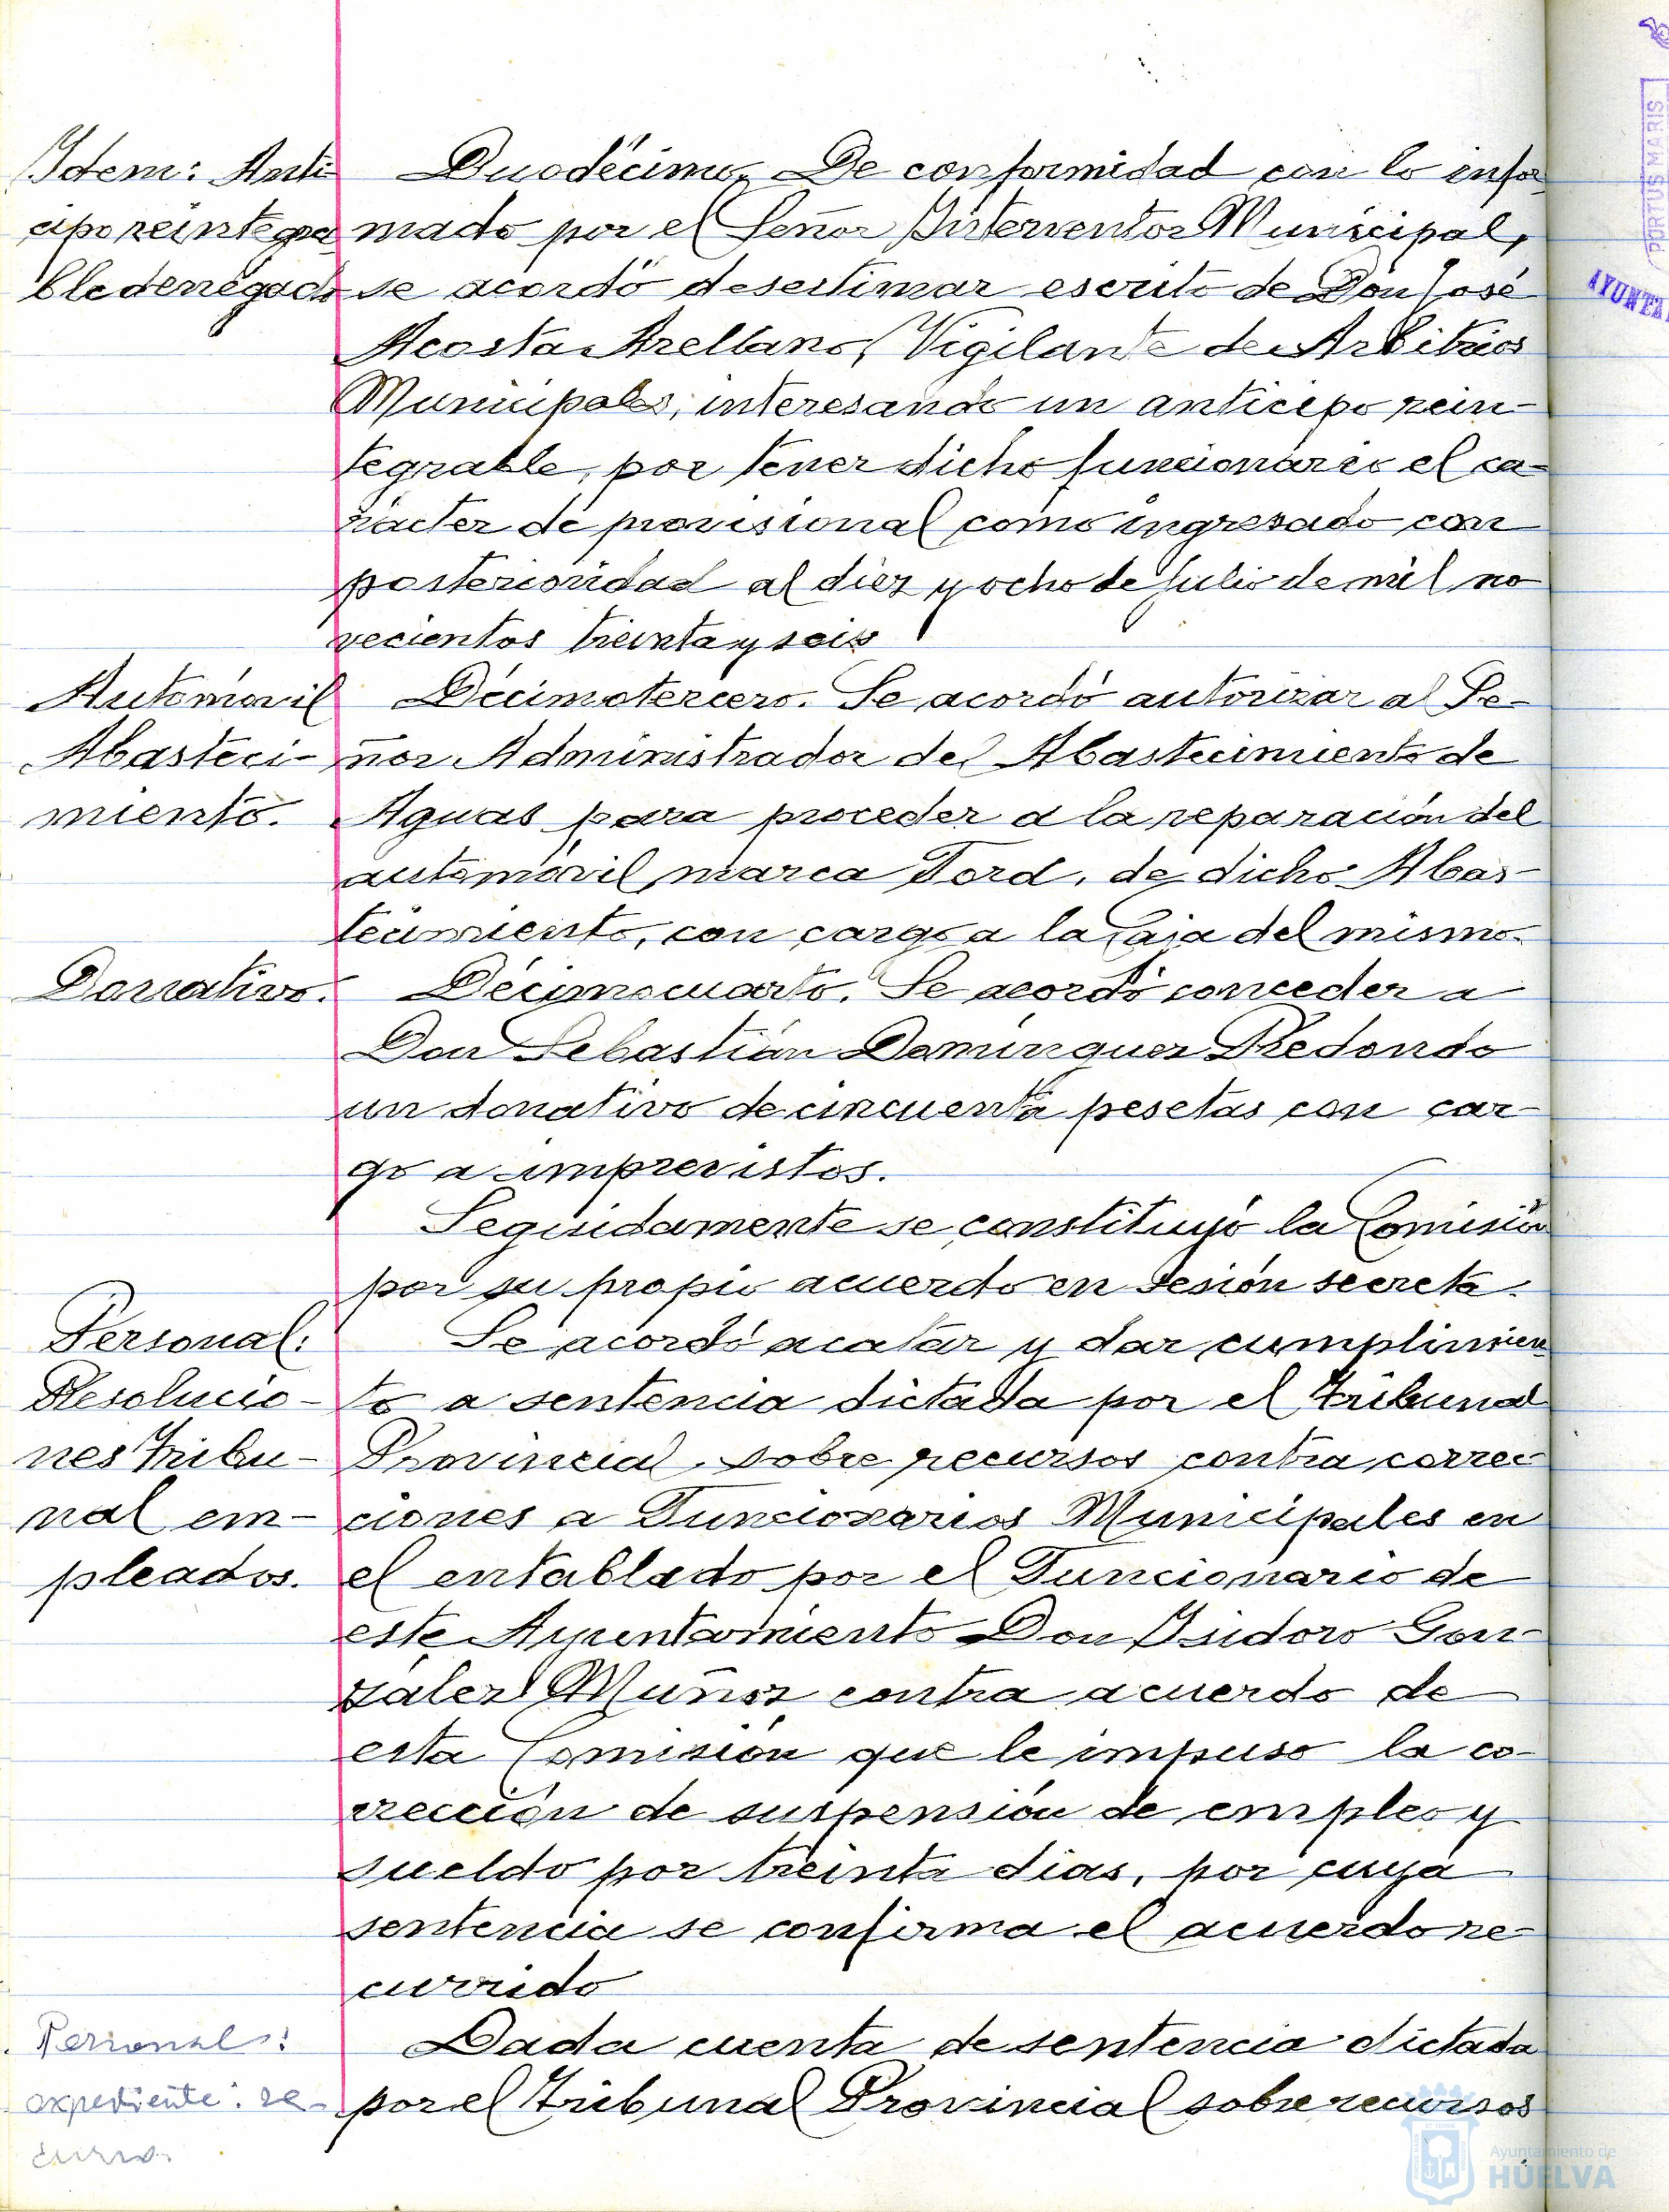 Idem: Anti
cipo reintegra
ble denegado
Duodécimo. De conformidad con lo infor
mado por el Señor Interventor Municipal,
se acordó desestimar escrito de Don José
Acosta Arellano, Vigilante de Arbitrios
Municipales, interesando un anticipo rein-
tegrable, por tener dicho funcionario el ca-
racter de provisional como ingresado con
posterioridad al diez y ocho de Julio de mil no
vecientos treinta y seis
Automóvil
Abasteci-
miento.
Décimotercero. Se acordó autorizar al Se-
ñor Administrador del Abastecimiento de
Aguas para proceder a la reparación del
automóvil marca Ford, de dicho Abas-
tecimiento, con cargo a la Caja del mismo.
Donativo.
Décimocuarto. Se acordó conceder a
Don Sebastián Domínguez Redondo
un donativo de cincuenta pesetas con car-
go a imprevistos.
Seguidamente se constituyó la Comisión
por su propio acuerdo en sesión secreta.
Personal:
Resolucio-
nes Tribu-
nal em-
pleados.
Se acordó acatar y dar cumplimien
to a sentencia dictada por el Tribunal
Provincial sobre recursos contra correc-
ciones a Funcionarios Municipales en
el entablado por el Funcionario de
este Ayuntamiento Don Isidoro Gon-
zalez Muñoz contra acuerdo de
esta Comisión que le impuso la co-
rrección de suspensión de empleo y
sueldo por treinta días, por cuya
sentencia se confirma el acuerdo re-
currido
Personal:
expediente: re-
curso.
Dada cuenta de sentencia dictada
por el Tribunal Provincial sobre recursos
PORTUS MARIS
AYUNTA
Ayuntamiento de
HUELVA